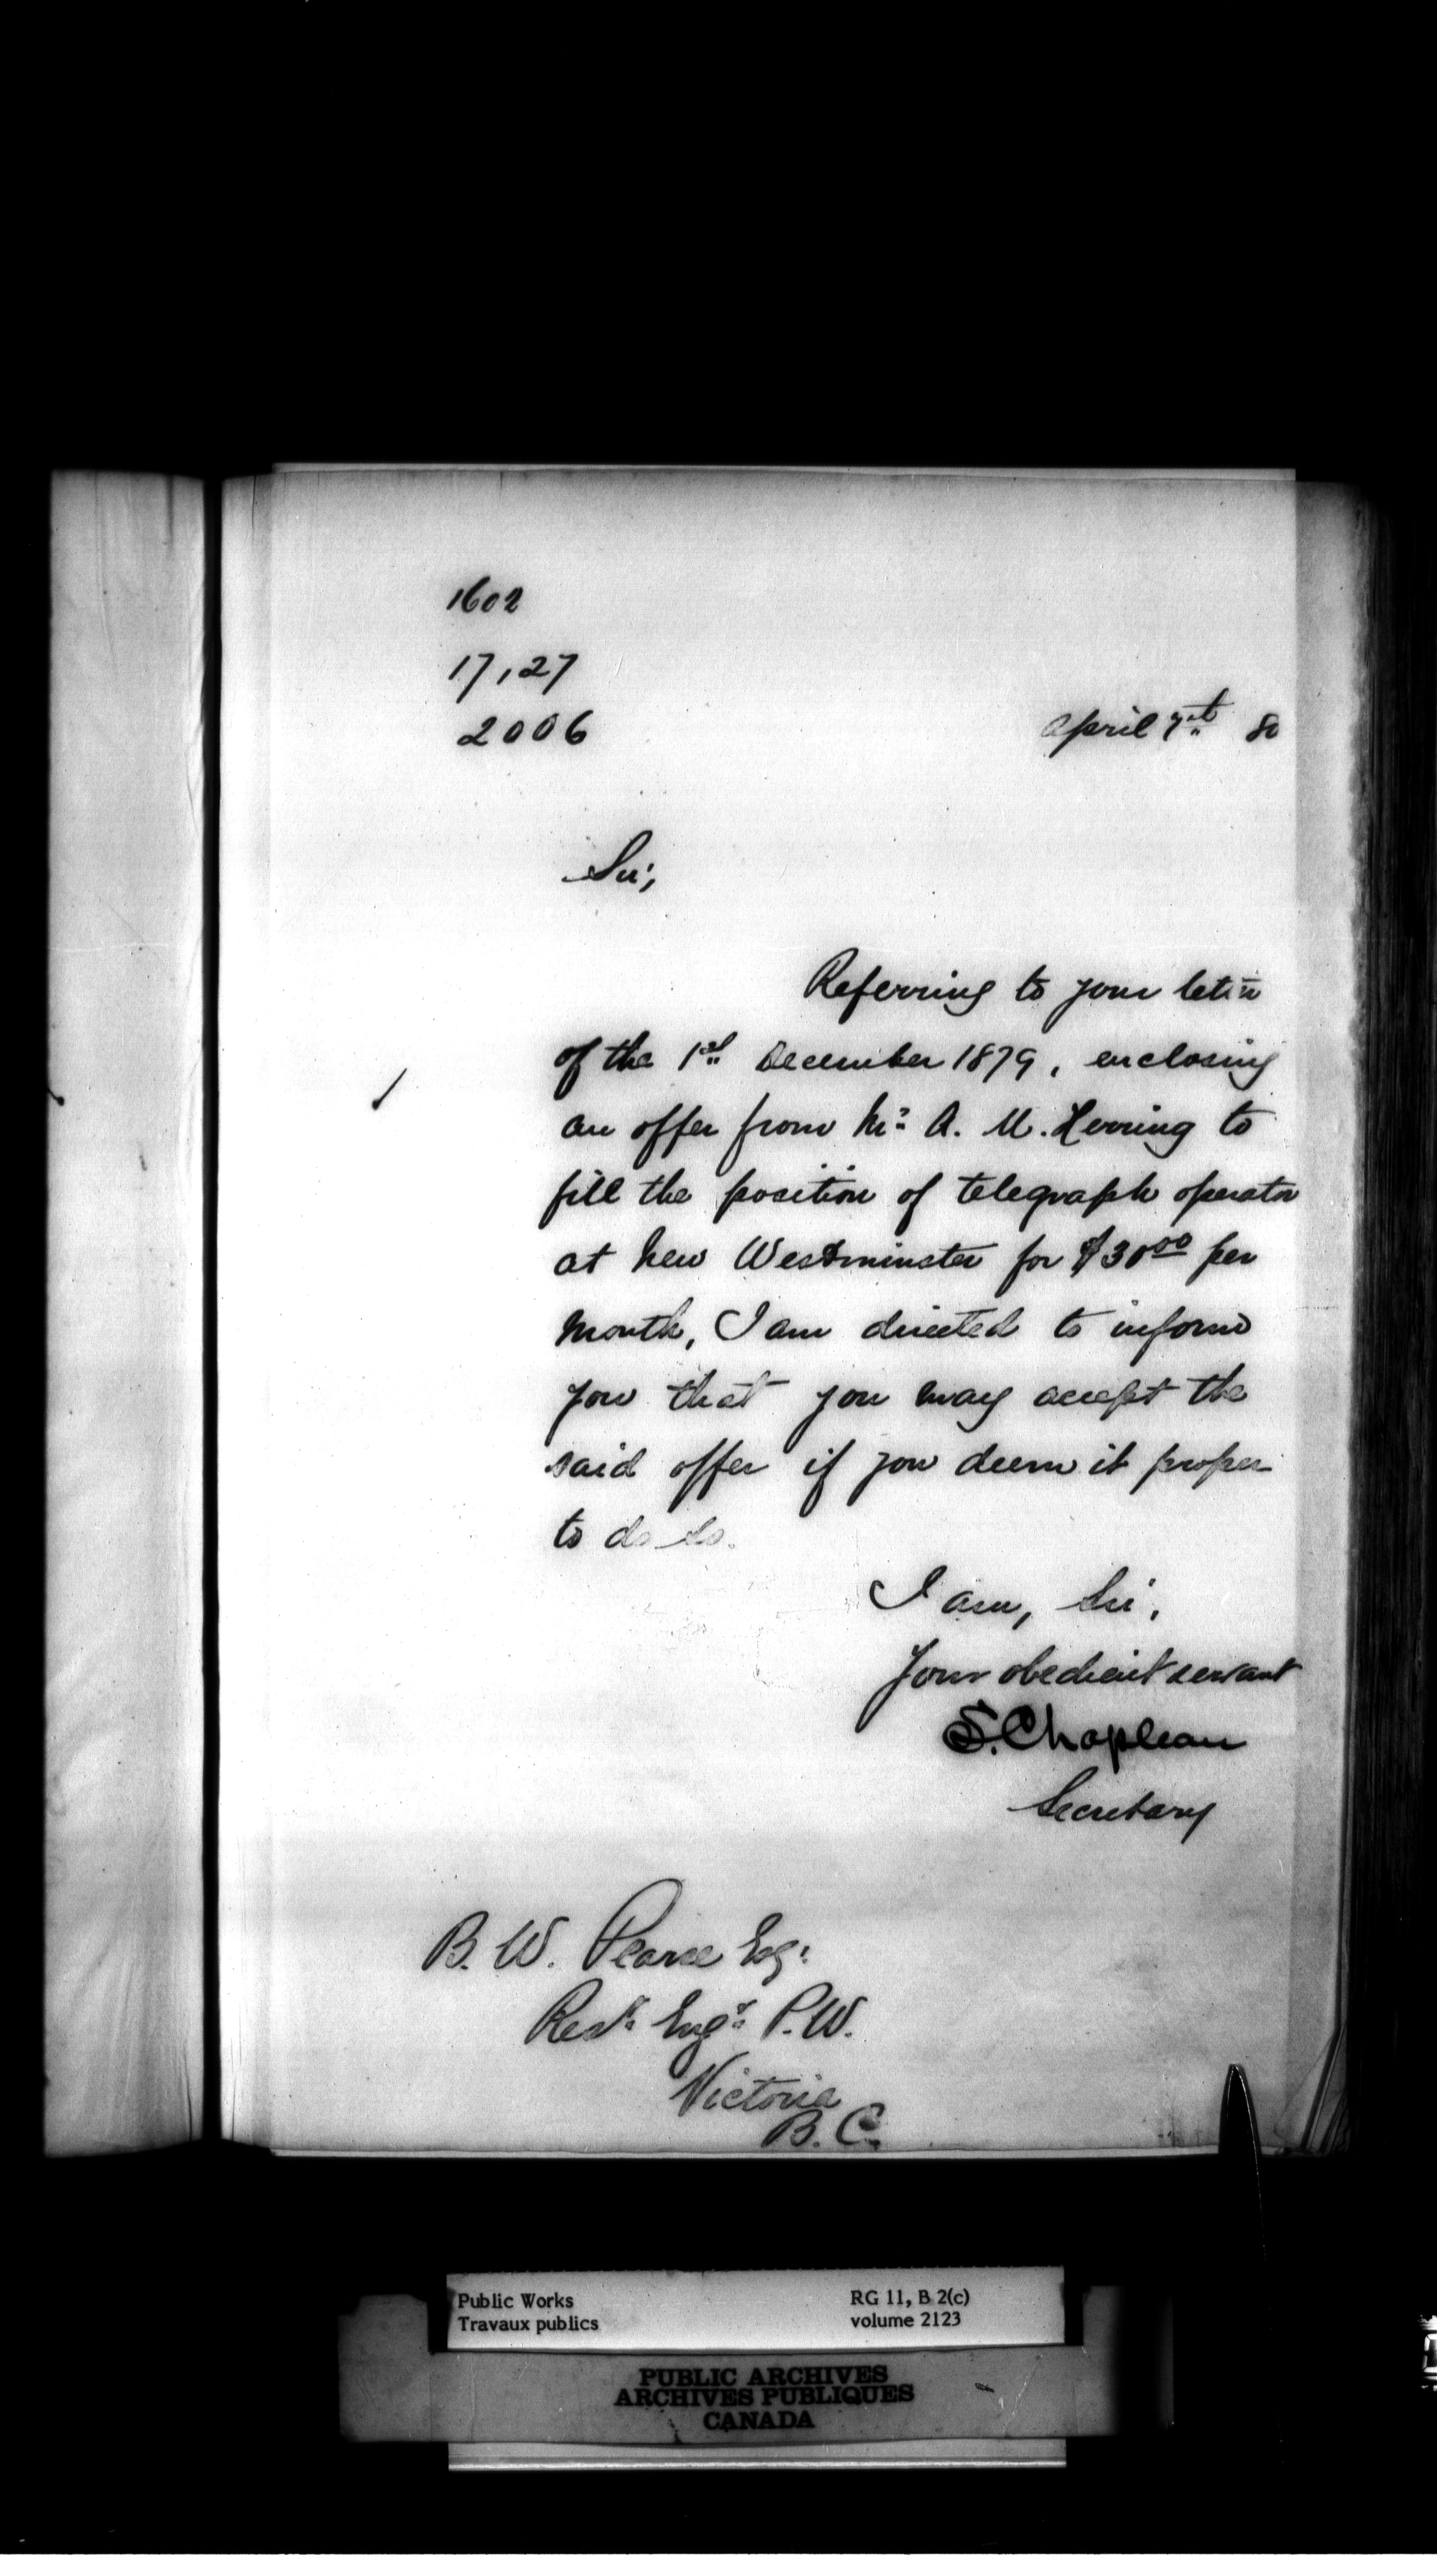 1602
17,27
2006
April 7th 80
Sir,
Referring to your letter
of the 1st December 1879, enclosing
an offer from Mr. A. M. Herring to
fill the position of telegraph operator
at New Westminster for $30 00 per
month, I am directed to inform
you that you may accept the
said offer if you deem it proper
to do so.
I am, Sir,
Your obedient servant
S. Chapleau
Secretary
B. W. Pearse Esq:
Resdt. Engr. P.W.
Victoria
B. C.
Public Works
Travaux publics
RG 11, B 2(c)
volume 2123
PUBLIC ARCHIVES
ARCHIVES PUBLIQUES
CANADA